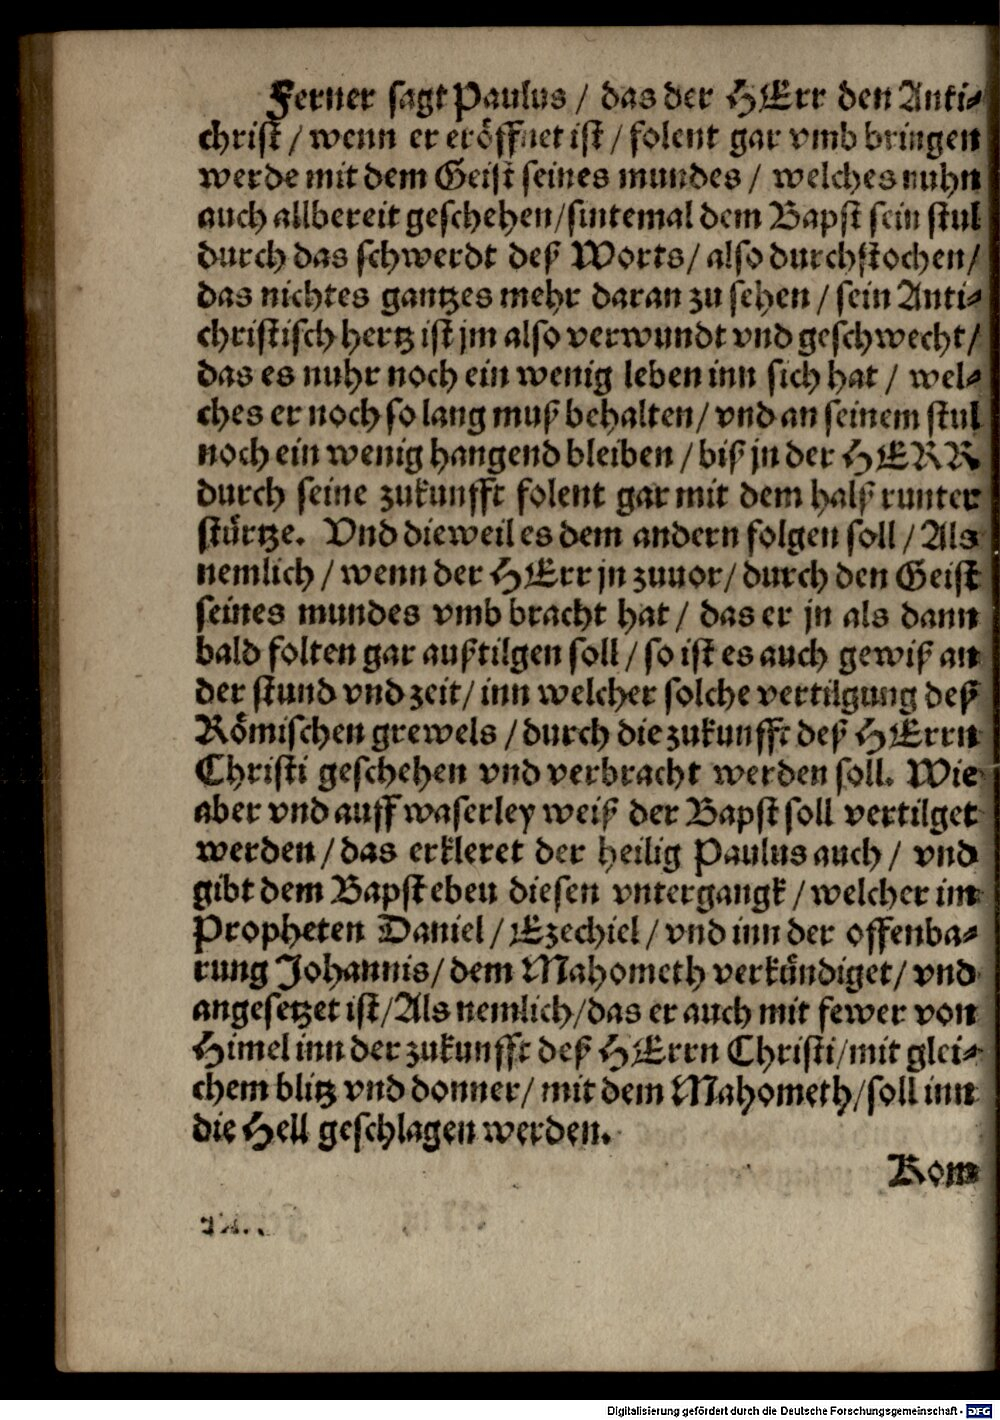 Ferner sagt Paulus / das der HErr den Anti⸗
christ / wenn er eröffnet ist / folent gar vmb bringen
werde mit dem Geist seines mundes / welches nuhn
auch allbereit geschehen/sintemal dem Bapst sein stul
durch das schwerdt deß Worts/ also durchstochen/
das nichtes gantzes mehr daran zu sehen / sein Anti⸗
christisch hertz ist jm also verwundt vnd geschwecht/
das es nuhr noch ein wenig leben inn sich hat / wel⸗
ches er noch so lang muß behalten/ vnd an seinem stul
noch ein wenig hangend bleiben / biß jn der HERR
durch seine zukunfft folent gar mit dem halß runter
stürtze. Vnd dieweil es dem andern folgen soll / Als
nemlich / wenn der HErr jn zuuor/ durch den Geist
seines mundes vmb bracht hat / das er jn als dann
bald folten gar außtilgen soll / so ist es auch gewiß an
der stund vnd zeit/ inn welcher solche vertilgung deß
Römischen grewels / durch die zukunfft deß HErrn
Christi geschehen vnd verbracht werden soll. Wie
aber vnd auff waserley weiß der Bapst soll vertilget
werden / das erkleret der heilig Paulus auch / vnd
gibt dem Bapst eben diesen vntergangk / welcher im
Propheten Daniel / Ezechiel / vnd inn der offenba⸗
rung Johannis/ dem Mahometh verkündiget/ vnd
angesetzet ist/Als nemlich/das er auch mit fewer von
Himel inn der zukunfft deß HErrn Christi/mit glei⸗
chem blitz vnd donner/ mit dem Mahometh/soll inn
die Hell geschlagen werden.
Rom
Digitalisierung gefördert durch die Deutsche Forschungsgemeinschaft - DFG